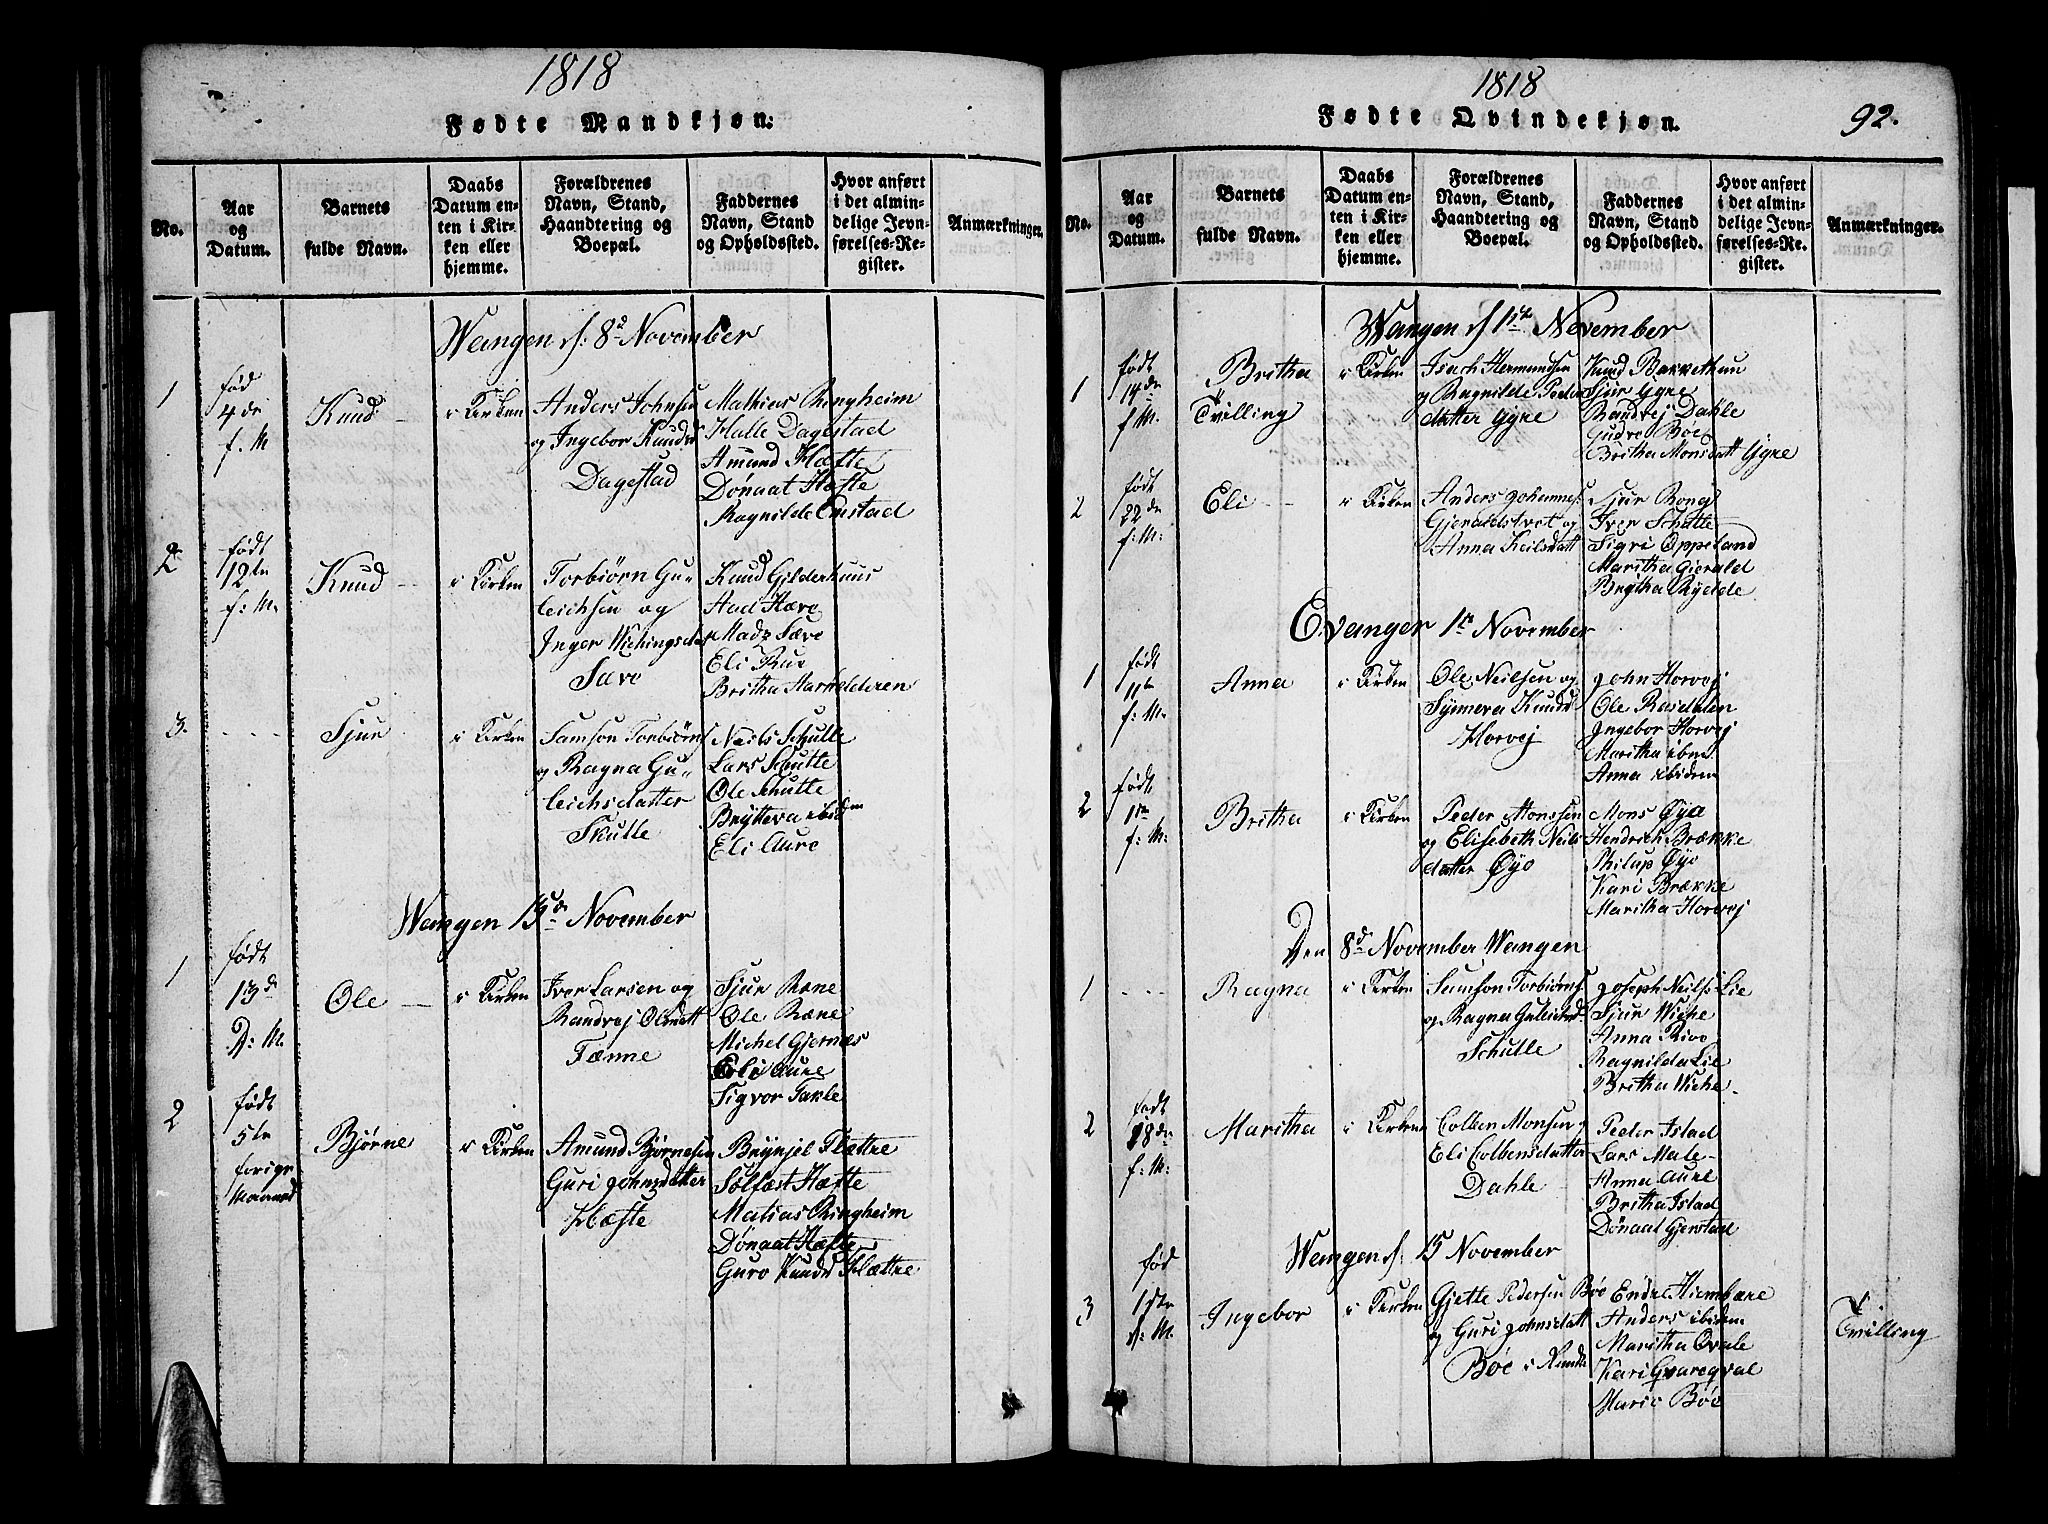 1818
Fødte Mandkjøn:
No.
Aar
og
Datum.
Barnets
fulde Navn.
Daabs
Datum en-
ten i Kir-
ken eller
hjemme.
Forældrenes
Navn, Stand,
Haandtering og
Boepæl.
Faddernes
Navn, Stand
og Opholdssted.
Hvor anført
i det almin-
delige Jevn-
førelses-Re-
gister.
Anmærkninger.
Wangen d: 8d November
1
fød
4de
f. M
Knud
i Kirken
Anders Johnsen
og Ingebor Knudsd
Dagestad
Mathias Ringheim
Halle Dagestad
Amund Hæfte
Dønaat Hæfte
Ragnilde Emstad
2
født
12te
f: M.
Knud
i Kirken
Torbiørn Gu-
leichsen og
Inger Wichingsdr
Sæve
Knud Gilderhuus
Aad Hæve
Mads Sæve
Eli Rue
Britha Harrelderen
3.
Sjur
i Kirken
Samson Torbiørns
og Ragna Gu-
leichsdatter
Skulle
Neils Schulle
Lars Schulle
Ole Schulle
Brytteva ibidem
Eli Aure
Wangen 15de November
1
født
13d
D: M.
Ole
i Kirken
Iver Larsen og
Randvej Olsdatt
Tænne
Sjur Rene
Ole Rene
Michel Gjernæs
Eli Aure
Sigvor Takle
2
født
5te
forige
Maaned
Bjørne
i Kirken
Amund Bjørnesen
Guri Johnsdatter
Hæfte
Brynjel Flættre
Sølfæst Hæfte
Matias Ringheim
Dønaat Hæfte
Guro Knudsd Flættre
1818
Fødte Qvindekjøn.
92.
No.
Aar
og
Datum.
Barnets
fulde Navn.
Daabs
Datum en-
ten i Kir-
ken eller
hjemme.
Forældrenes
Navn, Stand,
Haandtering og
Boepæl.
Faddernes
Navn, Stand
og Opholdssted.
Hvor anført
i det almin-
delige Jevn-
førelses-Re-
gister.
Anmærkninger.
Wangen d 1ste November
1
født
14de
f M.
Britha
Tvilling
i Kirken
Isach Hermundsen
og Ragnilde Peders
datter Gjre
Knud Bakkethun
Sjur Gjre
Randvej Dahle
Gudve Böe
Britha Monsdatt Gjre
2
født
22de
f: M:
Eli
i Kirken
Anders Johannes:
Gjeraldstvet og
Anna Neilsdatt
Sjur Rong
Iver Schulle
Sigri Oppeland
Maritha Gjerald
Brytha Rykke
Evanger 1ste November
1
født
11te
f: M.
Anna
i Kirken
Ole Neilsen og
Synneva Knuds
Horvej
John Horvej
Ole Rasdalen
Ingebor Horvej
Maritha ibm
Anna ibidem
2
født
1ste
f: M.
Britha
i Kirken
Peder Monssen
og Elisebeth Neils
datter Øyo
Mons Øyo
Hendrich Brække
Philup Øyo
Kari Brække
Maritha Horvej
Den 8d November Wangen
1
Ragna
i Kirken
Samson Torbiørns
og Ragna Guleichsd.
Schulle
Joseph Neils: Lie
Sjur Wiche
Anna Rive
Ragnilda Lie
Britha Wiche
2
født
18de
f: M:
Maritha
i Kirken
Colben Monsen og
Eli Colbensdatter
Dahle
Peder Istad
Lars Male
Anna Aure
Britha Istad
Dönaat Gjerstad
Wangen d: 15 November
3
fød
1ste
d: M.
Ingebor
i Kirken
Gjette Pedersen Böe
og Guri Johnsdatt
Böe i Runda
Endre Hiembære
Anders ibidem
Maritha Qvale
Kari Gvareqval
Mario Böe
Tvilling